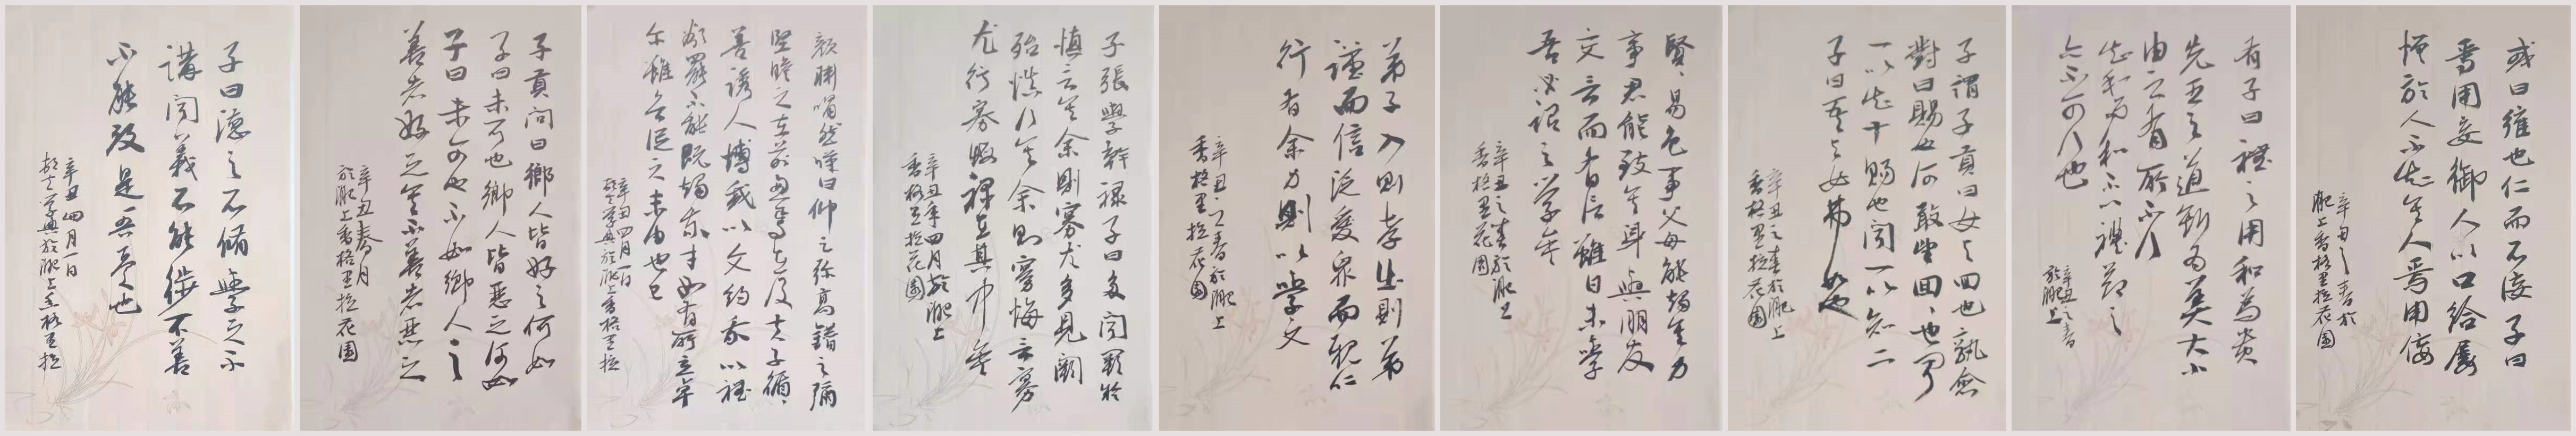 或曰雍也仁而不佞子曰
焉用佞御人以口給屡
憎於人不知其人焉用佞
辛丑之春於
肥上香格里拉花園
有子曰禮之用和為貴
先王之道斯為美大小
由之有所不行
知和而和不禮節之
亦不可行也
辛丑之春
於肥上
子謂子貢曰女與回也孰愈
對曰賜也何敢望回回也聞
一以知十賜也聞一以知二
子曰吾與女弗如也
辛丑之春於肥上
香格里拉花園
賢賢易色事父母能竭其力
事君能致其身與朋友
交言而有信雖曰未學
吾必謂之學矣
辛丑之春於肥上
香格里拉花園
弟子入則孝出則弟
謹而信泛愛眾而親仁
行有余力則以學文
辛丑之春於肥上
香格里拉花園
子張學幹禄子曰多闻闕疑
慎言其余則寡尤多見闕
殆慎行其余則寡悔言寡
尤行寡悔禄在其中矣
辛丑年四月於肥上
香格里拉花園
顏淵喟然嘆曰仰之弥高鑽之彌
堅瞻之在前忽焉在後夫子循循
善誘人博我以文約我以禮
欲罷不能既竭吾才如有所立卓
尔雖欲從之末由也已
辛丑四月一日
於肥上香格里拉
子貢問曰鄉人皆好之何如
子曰未可也鄉人皆惡之何如
子曰未可也不如鄉人之
善者好之其不善者惡之
辛丑春月
於肥上香格里拉花園
子曰德之不脩學之不
講闻義不能徙不善
不能改是吾憂也
辛丑四月一日
於肥上香格里拉